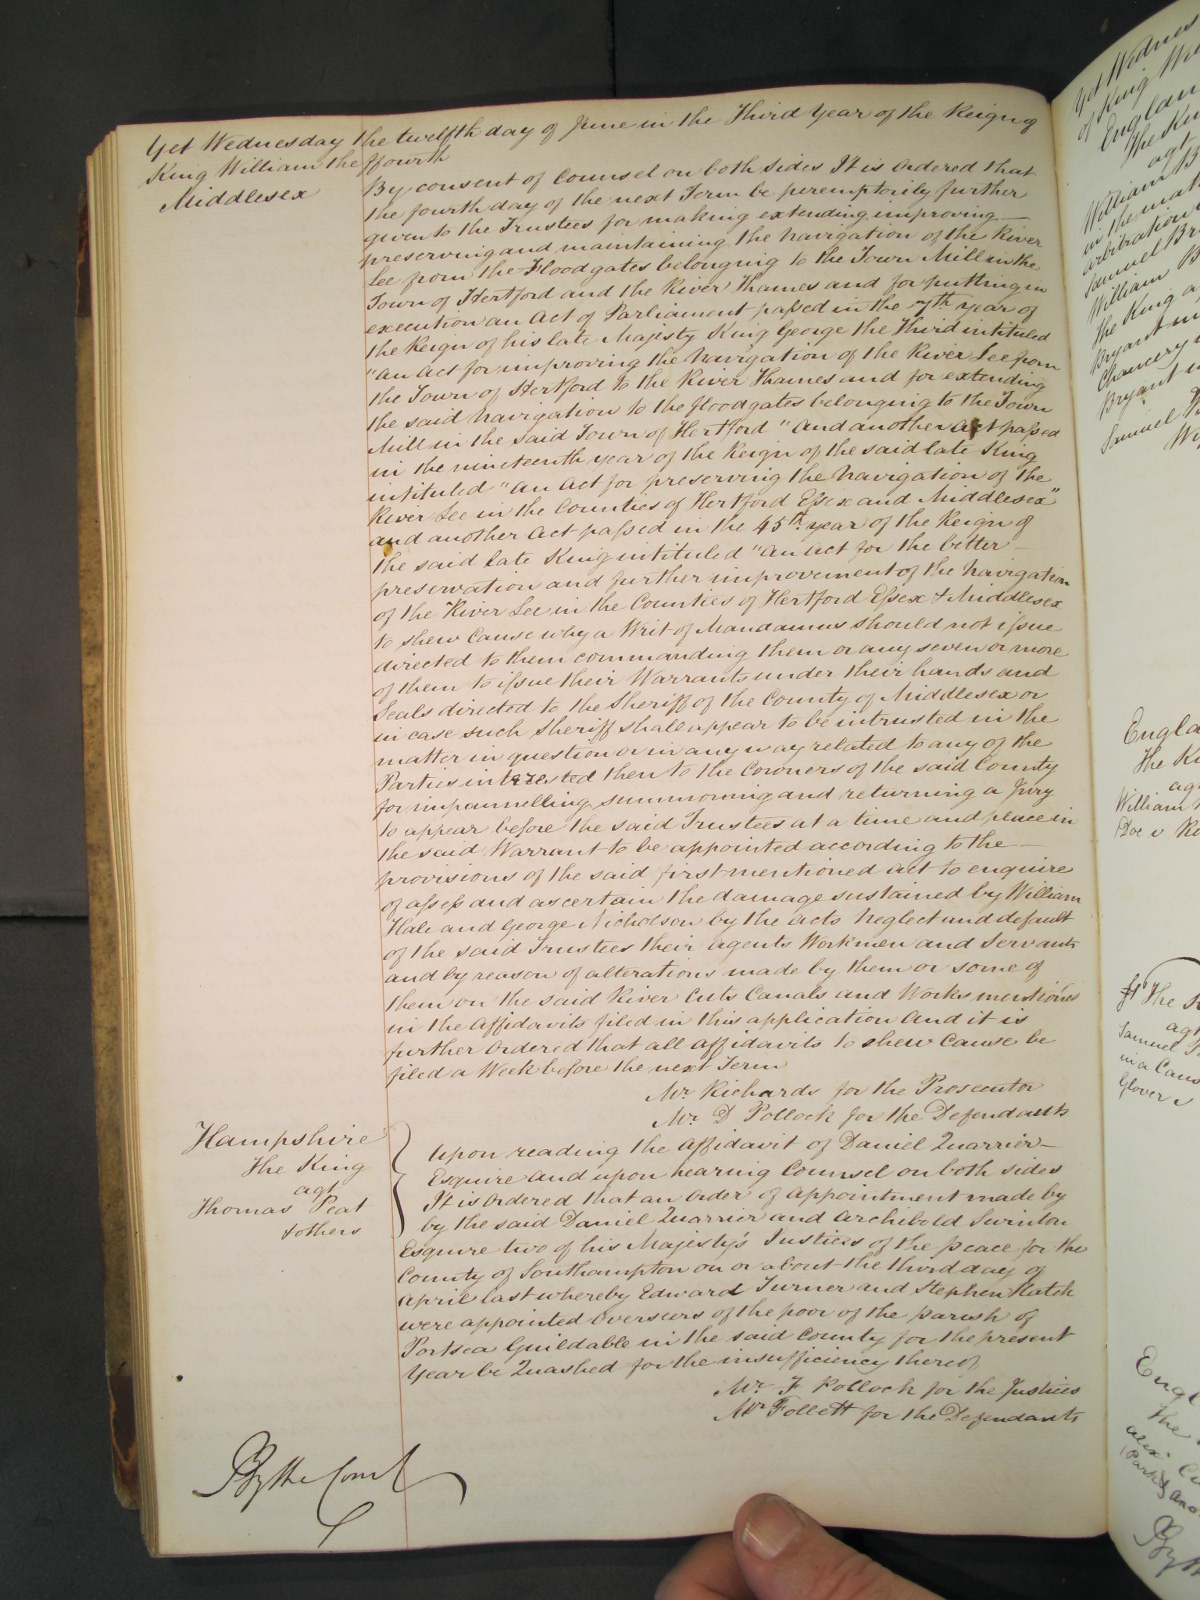 Yet Wednesday the twelfth day of June in the Third Year of the Reign of
King William the ffourth
Middlesex
By consent of Counsel on both sides It is Ordered that
the fourth day of the next Term be peremptorily further
given to the Trustees for making extending improving
preserving and maintaining the Navigation of the River
Lee from the Floodgates belonging to the Town Mill in the
Town of Hertford and the River Thames and for putting in
execution an Act of Parliament passed in the 7th year of
the Reign of his late Majesty King George the Third intituled
"An Act for improving the Navigation of the River Lee from
the Town of Hertford to the River Thames and for extending
the said Navigation to the floodgates belonging to the Town
Mill in the said Town of Hertford" And another Act passed
in the nineteenth year of the Reign of the said late King
intituled "An Act for preserving the Navigation of the
River Lee in the Counties of Hertford Essex and Middlesex"
and another Act passed in the 45th year of the Reign of
the said late King intituled "An act for the better
preservation and further improvement of the Navigation
of the River Lee in the Counties of Hertford Essex & Middlesex
to shew cause why a Writ of Mandamus should not issue
directed to them commanding them or any seven or more
of them to issue their Warrants under their hands and
Seals directed to the Sheriff of the County of Middlesex or
in case such Sheriff shall appear to be intrusted in the
matter in question or in any way related to any of the
Parties interested then to the Coroners of the said County
for impannelling summoning and returning a Jury
to appear before the said Trustees at a time and place in
the said Warrant to be appointed according to the
provisions of the said first mentioned act to enquire
of assess and ascertain the damage sustained by William
Hale and George Nicholson by the acts Neglect and default
of the said Trustees their agents Workmen and Servants
and by reason of alterations made by them or some of
them on the said River Cuts Canals and Works mentioned
in the Affidavits filed in this application And it is
further Ordered that all Affidavits to shew Cause be
filed a Week before the next Term
Mr Richards for the Prosecutor
Mr. D Pollock for the Defendants
Hampshire
The King
agt
Thomas Peat
& others
Upon reading the Affidavit of Daniel Quarrier
Esquire and upon hearing Counsel on both sides
It is Ordered that an Order of appointment made by
by the said Daniel Quarrier and Archibold Swinton
Esquire two of his Majesty's Justices of the peace for the
County of Southampton on or about the third day of
April last whereby Edward Turner and Stephen Hatch
were appointed Overseers of the poor of the parish of
Portsea Guildable in the said County for the present
Year be Quashed for the insufficiency thereof
Mr. F Pollock for the Justices
Mr Follett for the Defendants
By the Court
Yet Wednes
of King
Englan
The Kin
agt
William B
in the mat
arbitration
Samuel Br
William B
the King a
Bryant
Chancery
Bryant
Samuel
Engla
The Ki
ag
William
Doe v
The
agt
Samuel
in a Caus
Glover v
Engl
The
By the